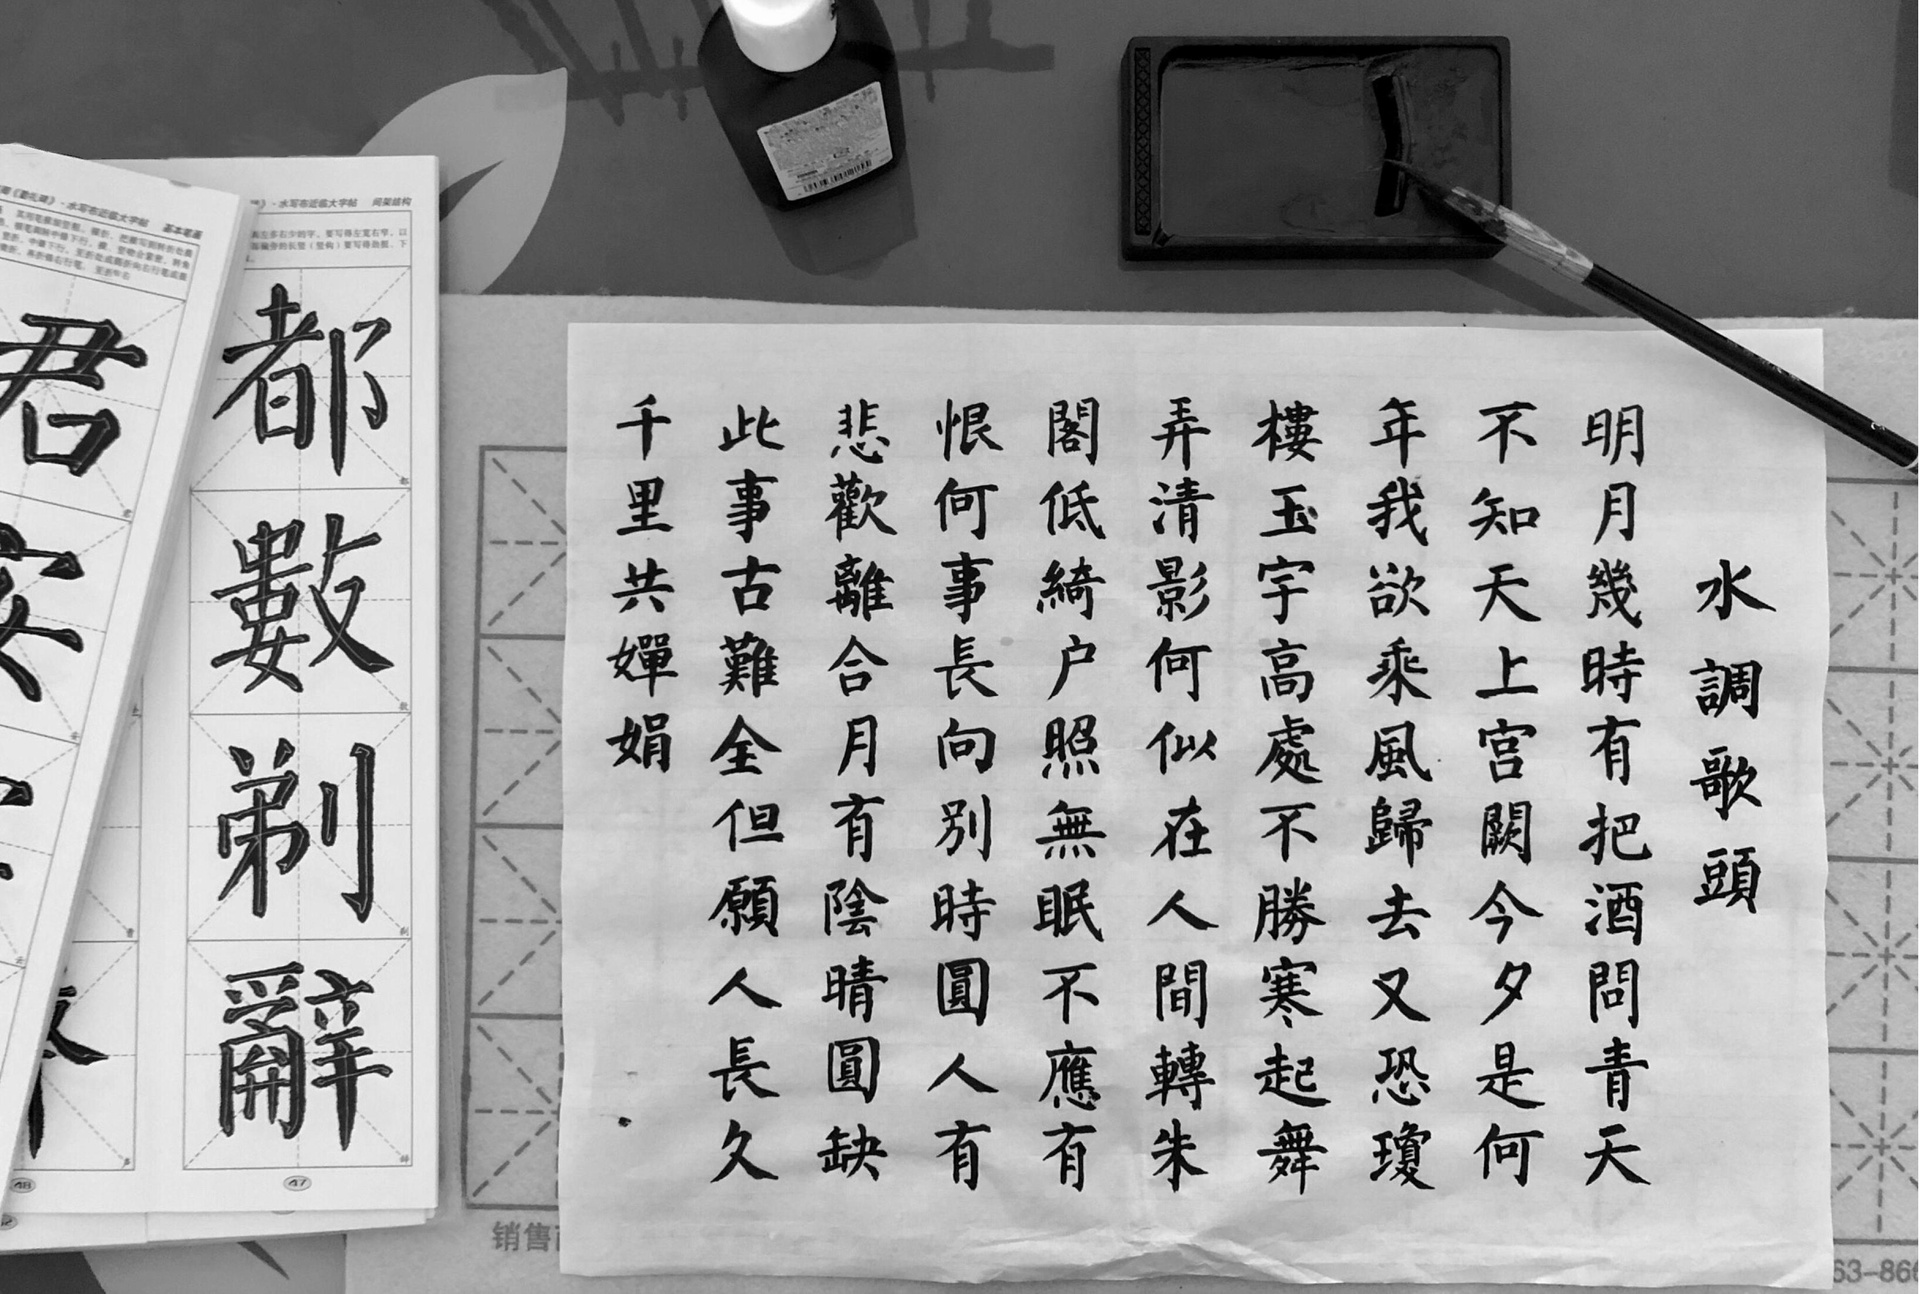 水調歌頭
明月幾時有把酒問青天
不知天上宮闕今夕是何
年我欲乘風歸去又恐瓊
樓玉宇高處不勝寒起舞
弄清影何似在人間轉朱
閣低綺户照無眠不應有
恨何事長向別時圓人有
悲歡離合月有陰晴圓缺
此事古難全但願人長久
千里共嬋娟
水写布近临大字帖 间架结构
都
數
剃
辭
47
水写布近临大字帖 基本笔画
君
安
48
销售
63-866